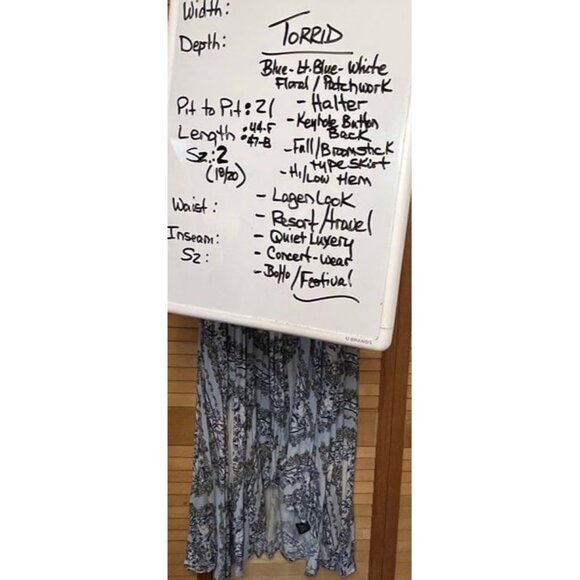 Width:
Depth:
Pit to Pit: 21
Length: 44-F
47-B
Sz: 2
(18/20)
Waist:
Inseam:
Sz:
TORRID
Blue-Lt.Blue-White
Floral/Patchwork
- Halter
- Keyhole Button
Back
- Fall/Broomstick
type skirt
- Hi/Low Hem
- Lagenlook
- Resort/travel
- Quiet Luxery
- Concert-wear
- BoHo/Festival
U BRANDS